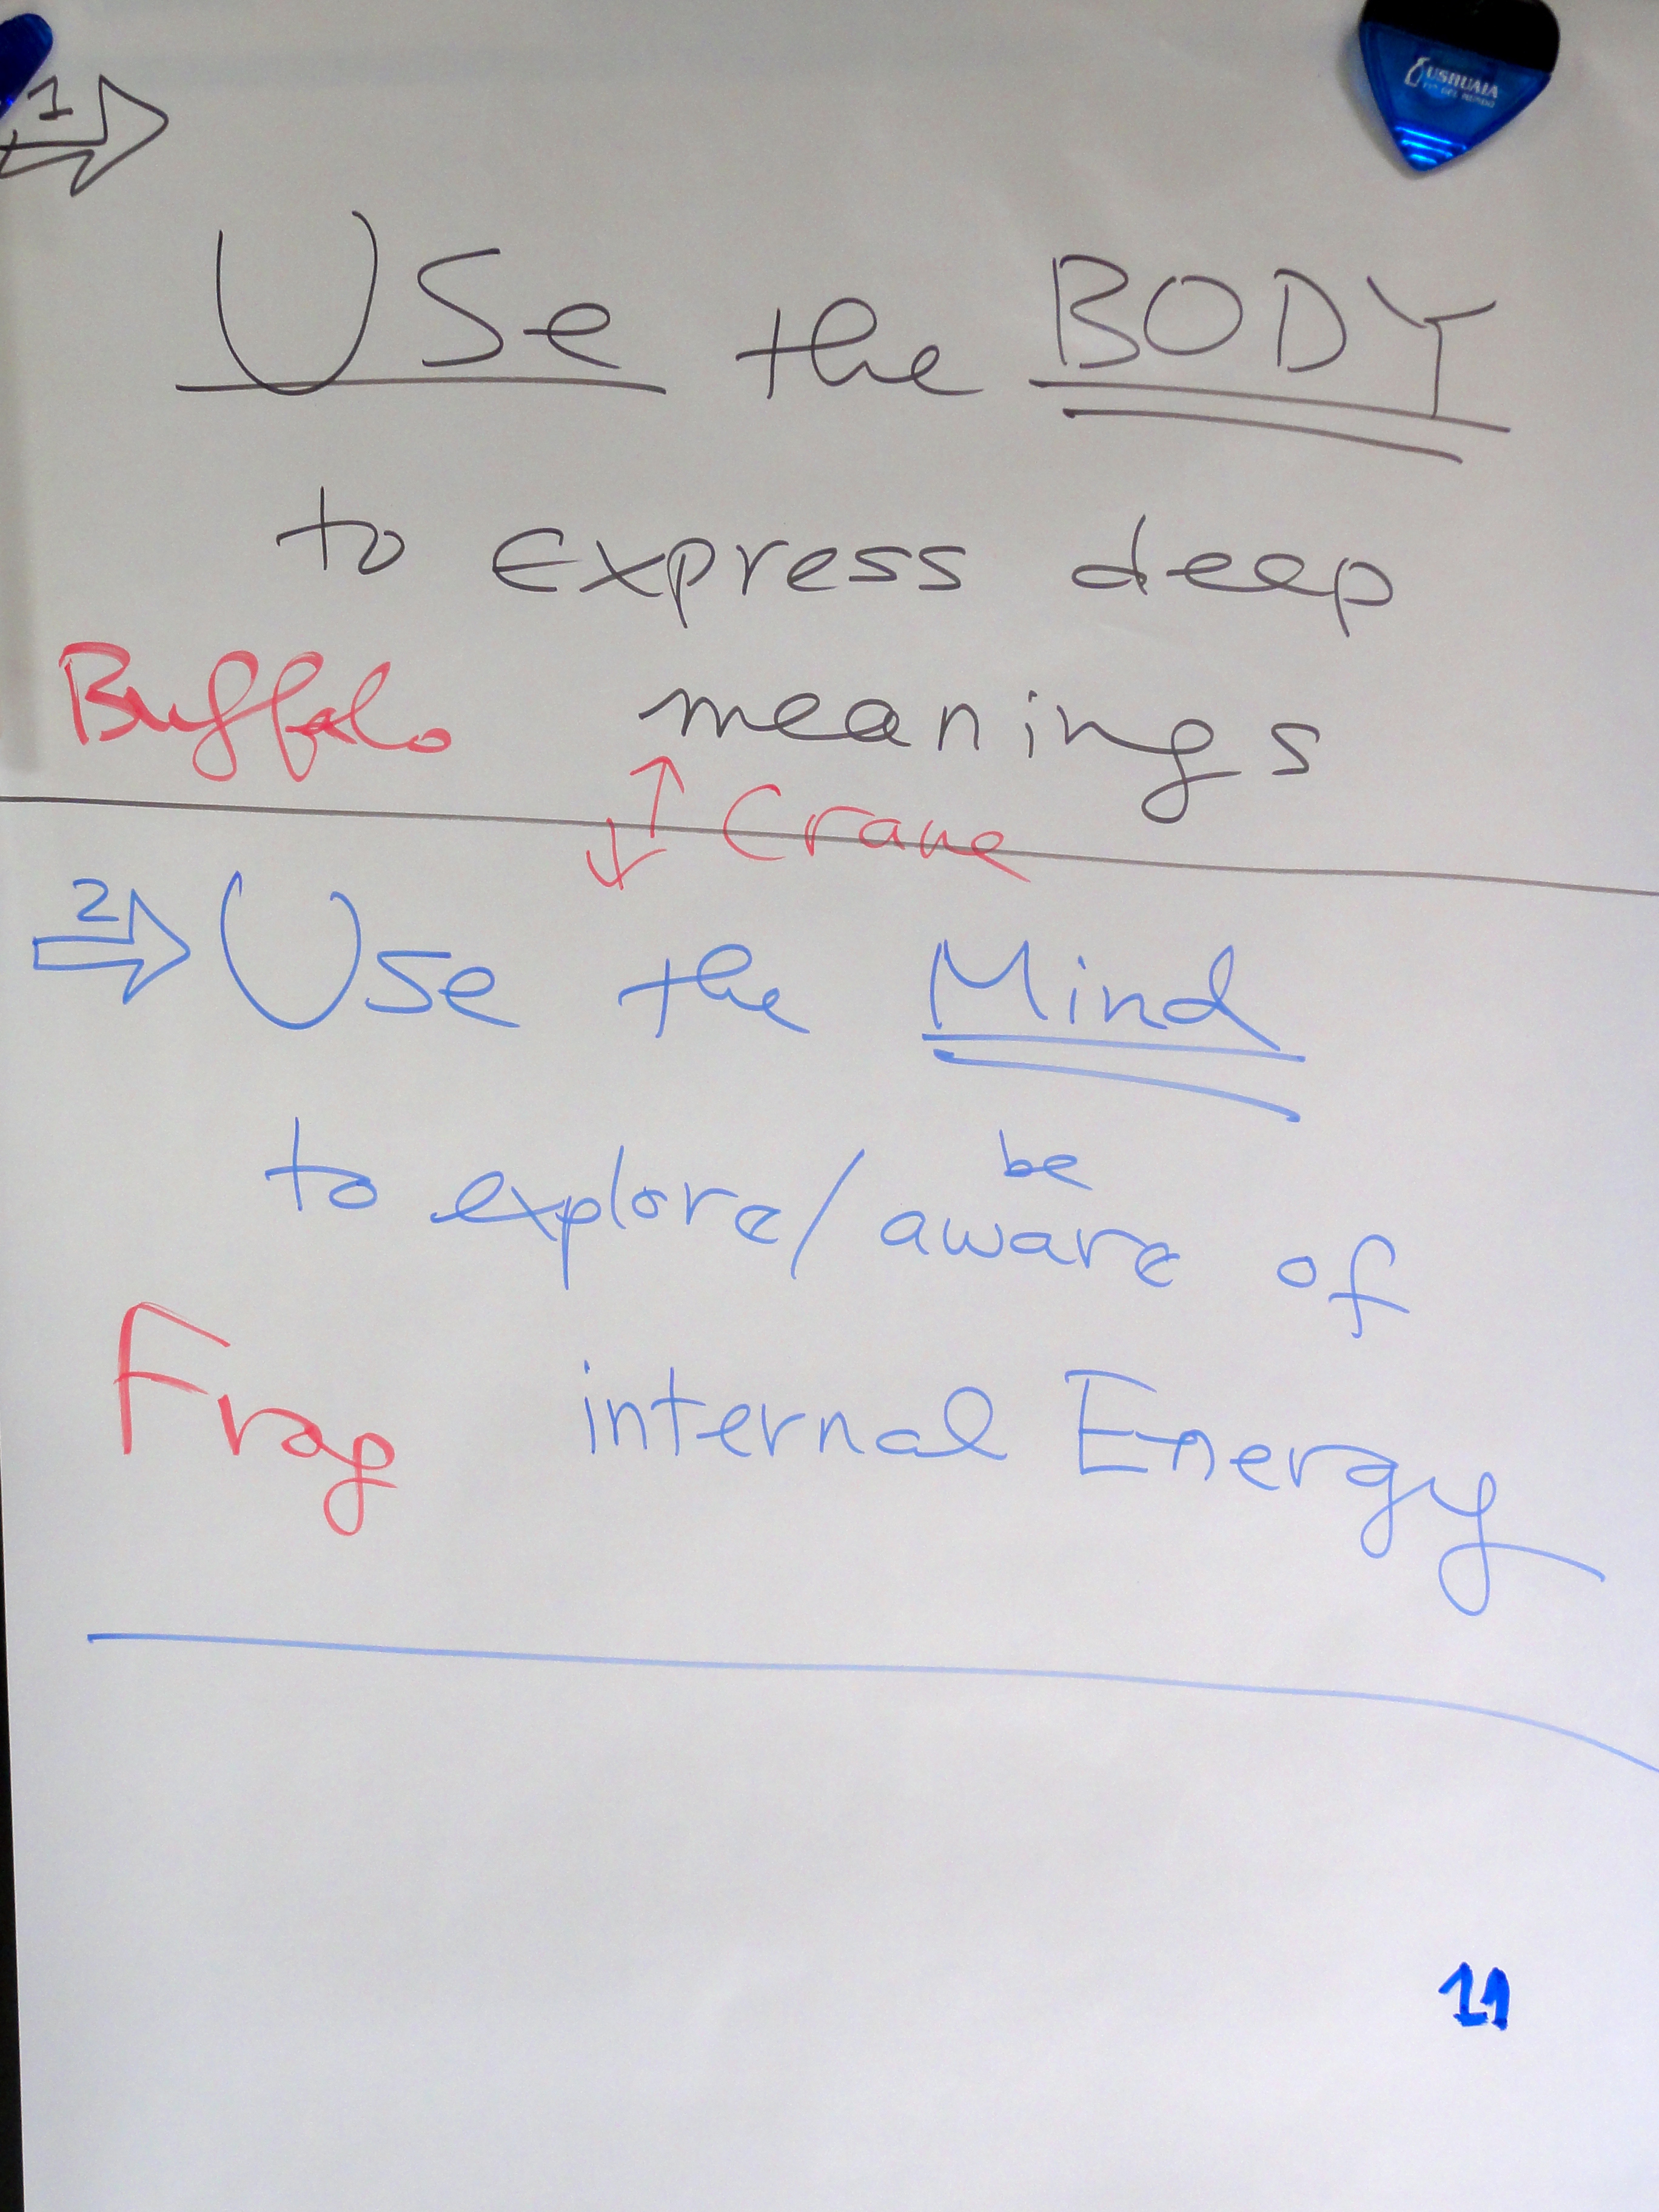 1
USHUAIA
FIN DEL MUNDO
Use the BODY
to express deep
Buffalo meanings
↑↓ Crane
2 Use the Mind
to explore/ be aware of
Frog internal Energy
11